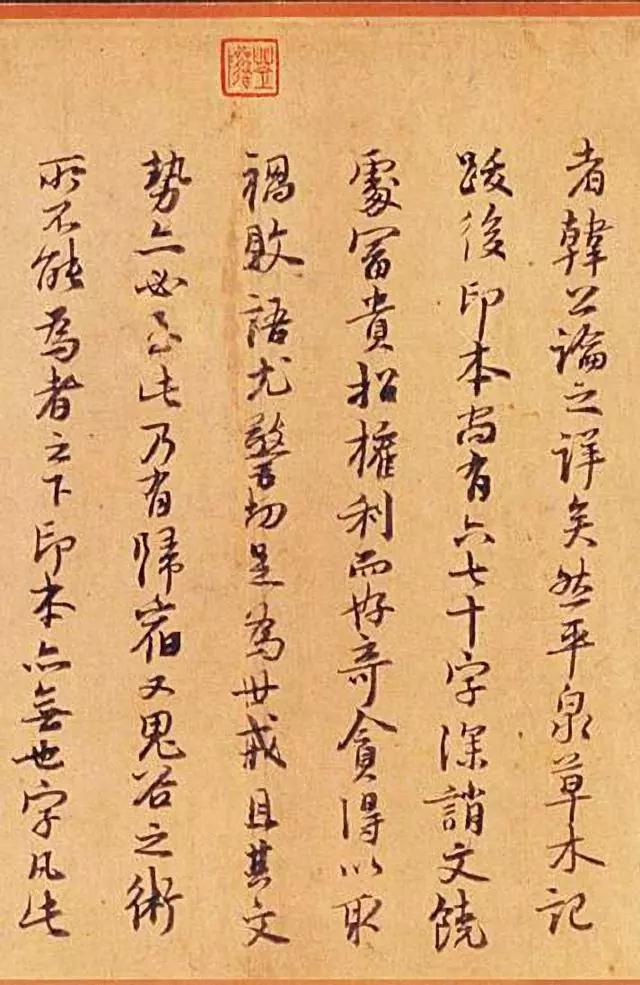 者韓公論之詳矣然平泉草木記
跋後印本尚有六七十字深誚文饒
處富貴招權利而好奇貪得以取
禍敗語尤警切足為世戒且其文
勢亦必至此乃有歸宿又鬼谷之術
所不能為者之下印本亦無也字凡此